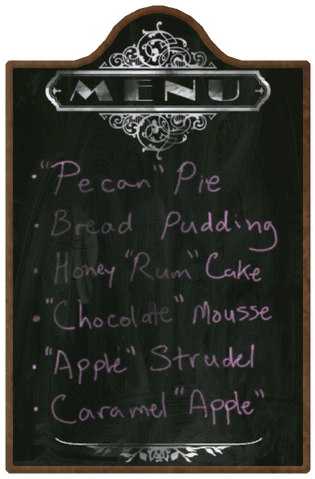 MENU
• "Pecan" Pie
• Bread Pudding
• Honey "Rum" Cake
• "Chocolate" Mousse
• "Apple" Strudel
• Caramel "Apple"